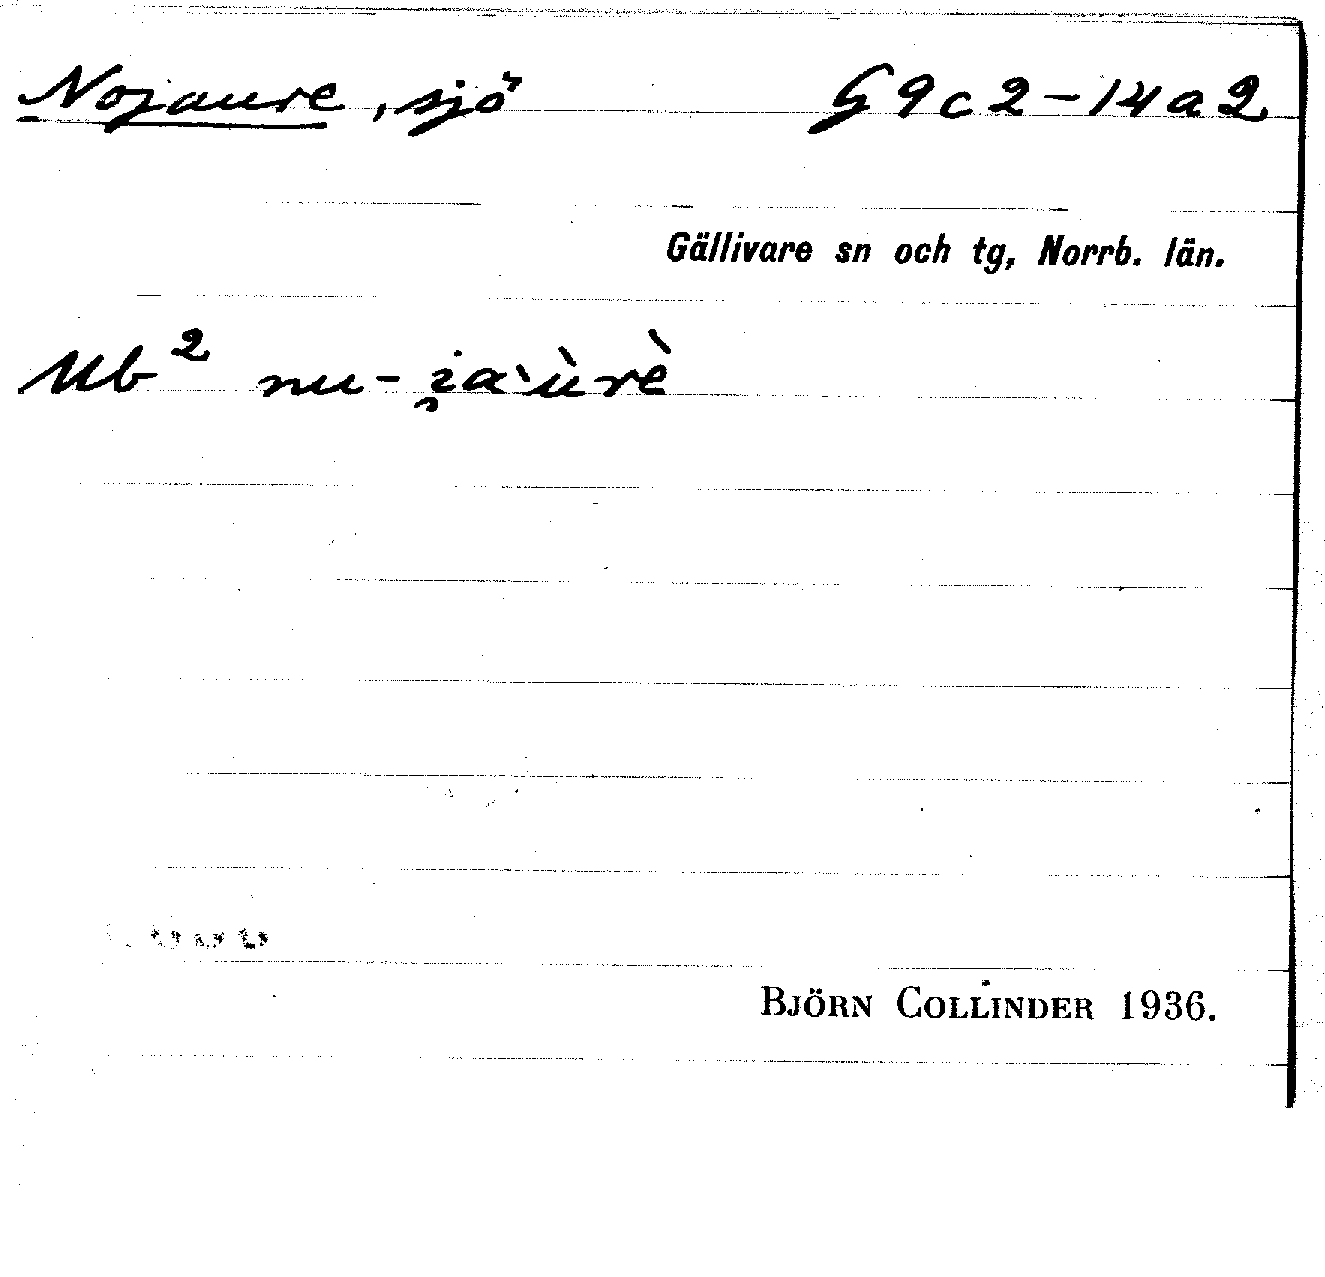 Nojaure, sjö G 9 c 2 - 14 a 2
Gällivare sn och tg, Norrb. län.
Ub² nu-i̯a`ùrè
BJÖRN COLLINDER 1936.